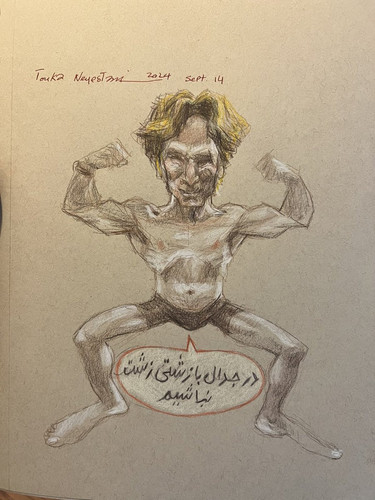 Touka Neyestani 2024 Sept. 14
در جدال با زشتی زشت
نباشیم